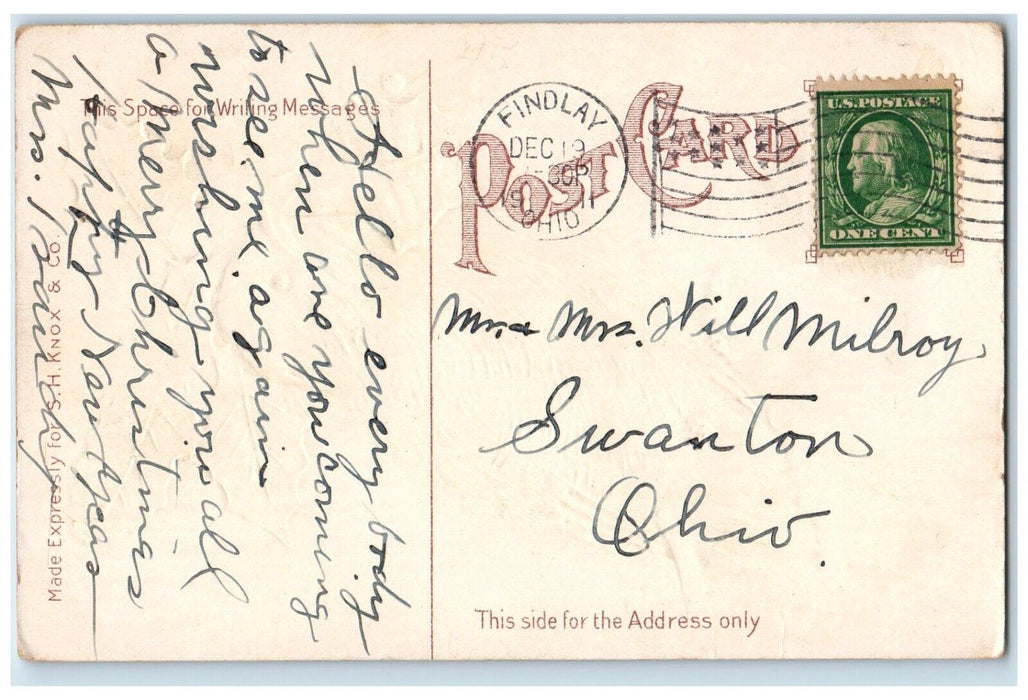 This Space for Writing Messages
Hello every body
when are you coming
to see me again
wishing you all
a Merry Christmas
Happy New Years
Mrs.
Made Expressly for S. H. KNOX & CO.
POST CARD
FINDLAY
DEC 19
1911
OHIO
U.S. POSTAGE
ONE CENT
Mr. & Mrs. Will Milroy,
Swanton
Ohio.
This side for the Address only